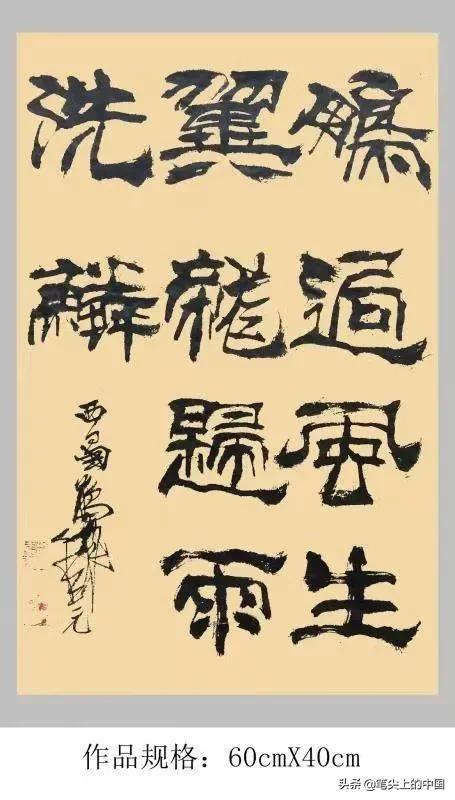 鵬過風生
翼龍歸雨
洗鱗
西蜀
作品规格：60cmX40cm
头条 @笔尖上的中国